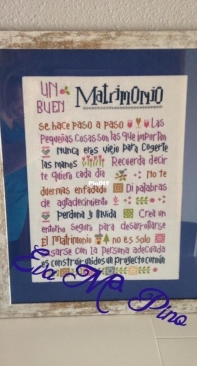 UN BUEN Matrimonio
se hace paso a paso Las
Pequeñas Cosas son las que importan
Nunca eras viejo para Cogerte
las manos Recuerda decir
te quiero cada día No te
duermas enfadado Di palabras
de agradecimiento
perdona y olvida Crea un
entorno seguro para desarrollarse
El Matrimonio no es solo
casarse con la persona adecuada
es construir unidos un proyecto común
Eva Mª Pino